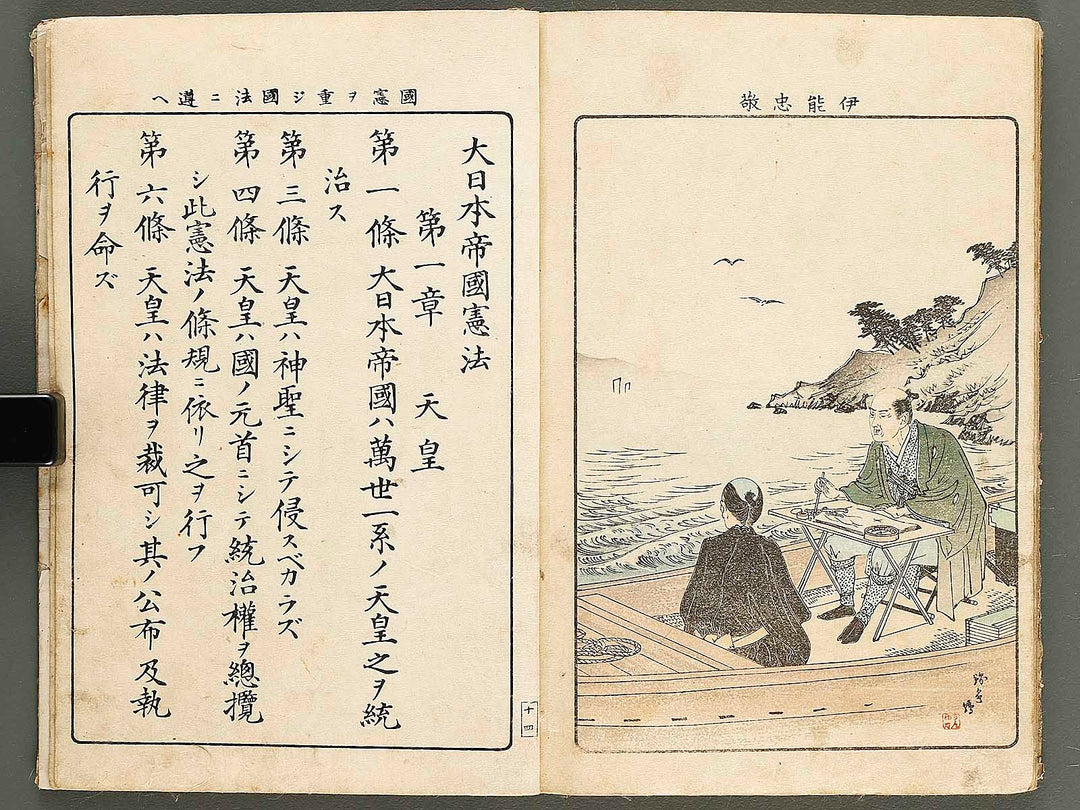 伊能忠敬
國憲ヲ重ジ國法ニ遵ヘ
大日本帝國憲法
第一章 天皇
第一條 大日本帝國ハ萬世一系ノ天皇之ヲ統
治ス
第三條 天皇ハ神聖ニシテ侵スベカラズ
第四條 天皇ハ國ノ元首ニシテ統治權ヲ總攬
シ此憲法ノ條規ニ依リ之ヲ行フ
第六條 天皇ハ法律ヲ裁可シ其ノ公布及執
行ヲ命ズ
十四